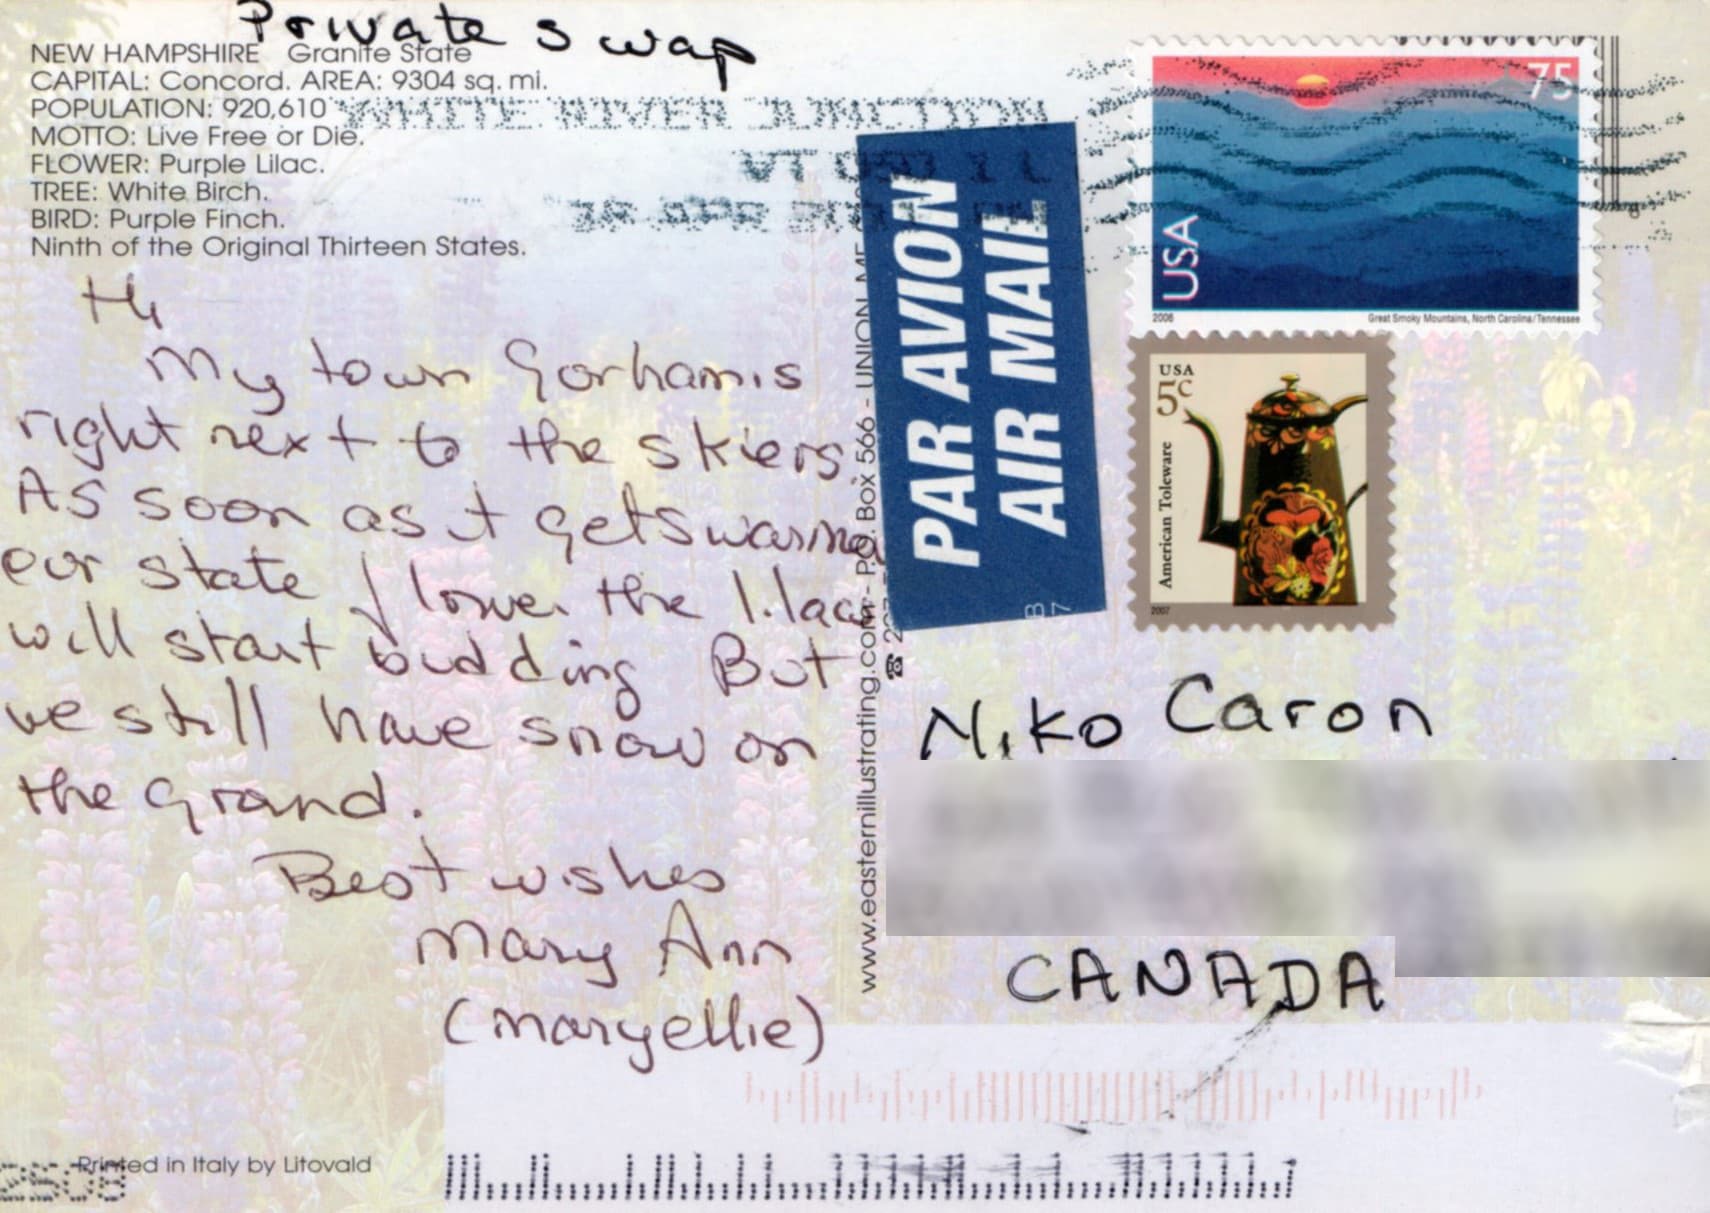 Private swap
NEW HAMPSHIRE Granite State
CAPITAL: Concord. AREA: 9304 sq. mi.
POPULATION: 920,610
MOTTO: Live Free or Die.
FLOWER: Purple Lilac.
TREE: White Birch.
BIRD: Purple Finch.
Ninth of the Original Thirteen States.
WHITE RIVER JUNCTION
VT
APR
Hi
My town Gorham is
right next to the skiers.
As soon as it gets warme
our state flower the lilac
will start budding But
we still have snow on
the Grand.
Best wishes
Mary Ann
(maryellie)
Printed in Italy by Litovald
www.easternillustrating.com - P.O. Box 566 - UNION, ME
PAR AVION
AIR MAIL
75
USA
2006
Great Smoky Mountains, North Carolina/Tennessee
USA
5c
American Toleware
2007
Niko Caron
CANADA